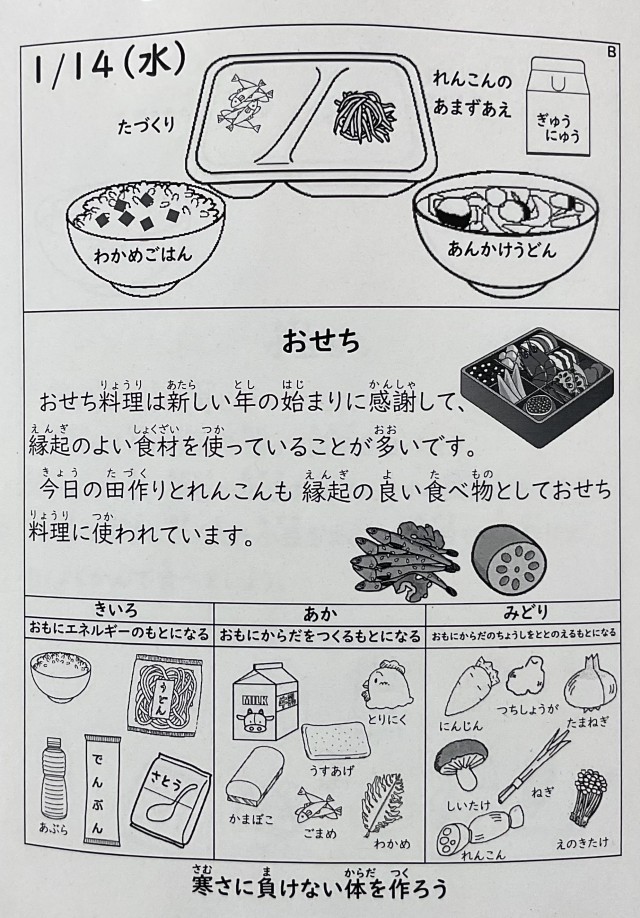 B
1/14(水)
たづくり
れんこんの
あまずあえ
ぎゅう
にゅう
わかめごはん
あんかけうどん
おせち
おせち料理は新しい年の始まりに感謝して、
縁起のよい食材を使っていることが多いです。
今日の田作りとれんこんも 縁起の良い食べ物としておせち
料理に使われています。
きいろ
おもにエネルギーのもとになる
うどん
あぶら
でんぷん
さとう
あか
おもにからだをつくるもとになる
MILK
とりにく
うすあげ
かまぼこ
ごまめ
わかめ
みどり
おもにからだのちょうしをととのえるもとになる
にんじん
つちしょうが
たまねぎ
しいたけ
ねぎ
えのきたけ
れんこん
寒さに負けない体を作ろう